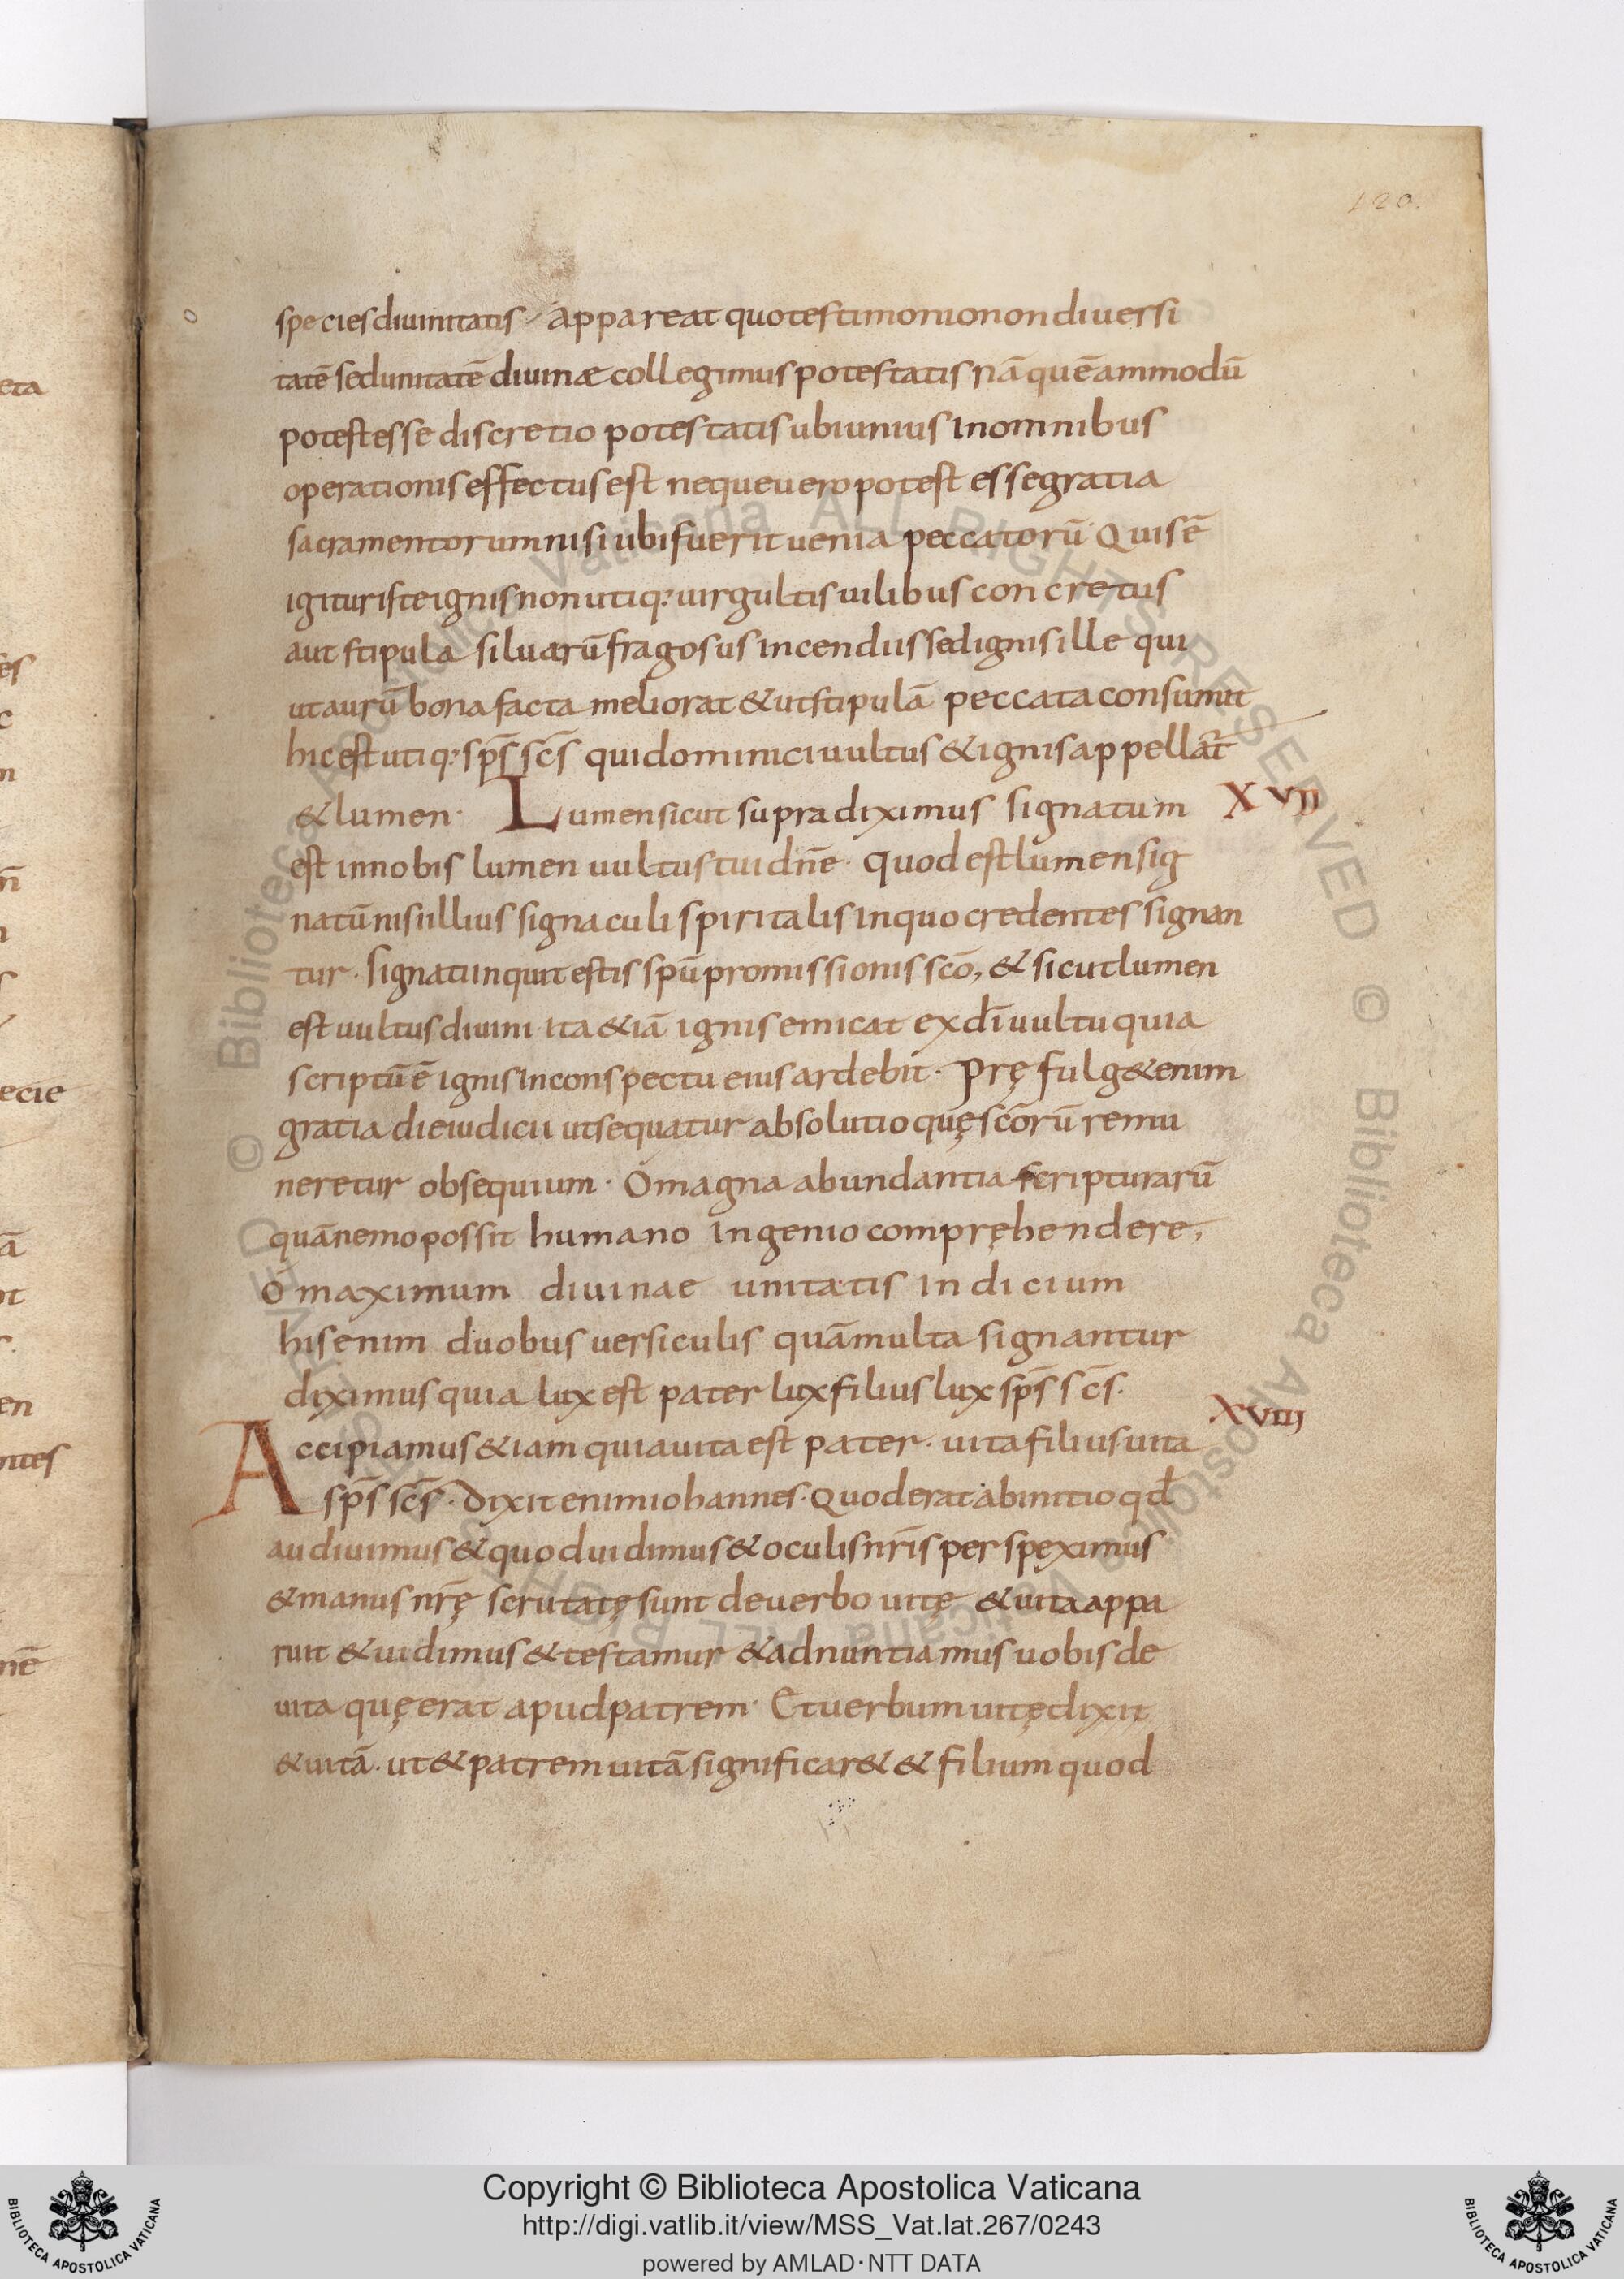 120.
species diuinitatis appareat quo testimonio non diuersi
tatē sed unitatē diuinæ collegimus potestatis nā quēammodū
potest esse discretio potestatis ubi unius in omnibus
operationis effectus est neque uero potest esse gratia
sacramentorum nisi ubi fuerit uenia peccatorū· Quis ē
igitur iste ignis non utiq; uirgultis uilibus concretus
aut stipula siluarū fragosus incendiis sed ignis ille qui
ut aurū bona facta meliorat & ut stipulā peccata consumit
hic est utiq; sp̄s sc̄s qui dominici uultus & ignis appellat̄
& lumen· Lumen sicut supra diximus signatum XVII
est in nobis lumen uultus tui dn̄e· Quod est lumen sig
natū nisi illius signaculi spiritalis in quo credentes signan
tur· signati inquit estis spū promissionis scō, & sicut lumen
est uultus diuini ita &iā ignis emicat ex dī uultu quia
scriptū ē ignis in conspectu eius ardebit· Prę fulg& enim
gratia die iudicii ut sequatur absolutio quę scōrū remu
neretur obsequium· O magna abundantia scripturarū
quā nemo possit humano ingenio compręhendere,
O maximum diuinae unitatis indicium
his enim duobus uersiculis quā multa signantur
diximus quia lux est pater lux filius lux sp̄s sc̄s.
Accipiamus &iam quia uita est pater· uita filius uita XVIII
sp̄s sc̄s· Dixit enim iohannes· Quod erat ab initio qđ
audiuimus & quod uidimus & oculis nr̄is perspęximus
& manus nr̄ę scrutatę sunt de uerbo uitę & uita appa
ruit & uidimus & testamur & adnuntiamus uobis de
uita quę erat apud patrem· Et uerbum uitę dixit
& uitā· ut & patrem uitā significar& & filium quod
eta
ecie
Copyright © Biblioteca Apostolica Vaticana
http://digi.vatlib.it/view/MSS_Vat.lat.267/0243
powered by AMLAD·NTT DATA
BIBLIOTECA APOSTOLICA VATICANA
BIBLIOTECA APOSTOLICA VATICANA